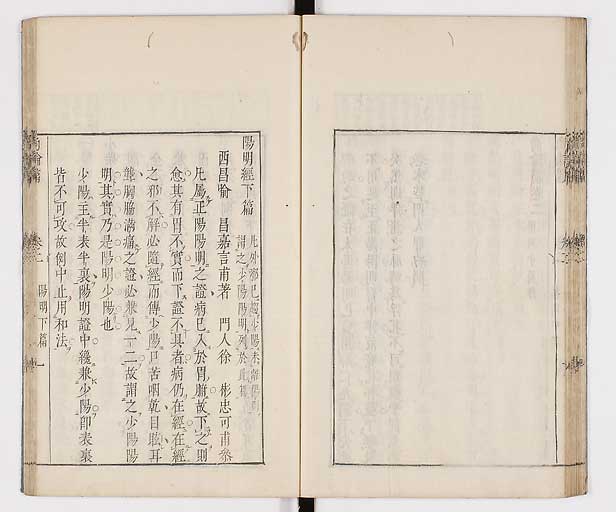 陽明經下篇 凡外邪已趨少陽未離陽明謂之少陽陽明列於此篇
西昌喻 昌嘉言甫著 門人徐 彬忠可甫叅
凡屬正陽陽明之證病已入於胃腑故下之則
愈其有胃不實而下證不具者病仍在經在經
之邪不解必隨經而傳少陽口苦咽乾目眩耳
聾胸脇滿痛之證必兼見一二故謂之少陽陽
明其實乃是陽明少陽也
少陽主半表半裏陽明證中纔兼少陽即表裏
皆不可攻故例中止用和法
陽明下篇 一